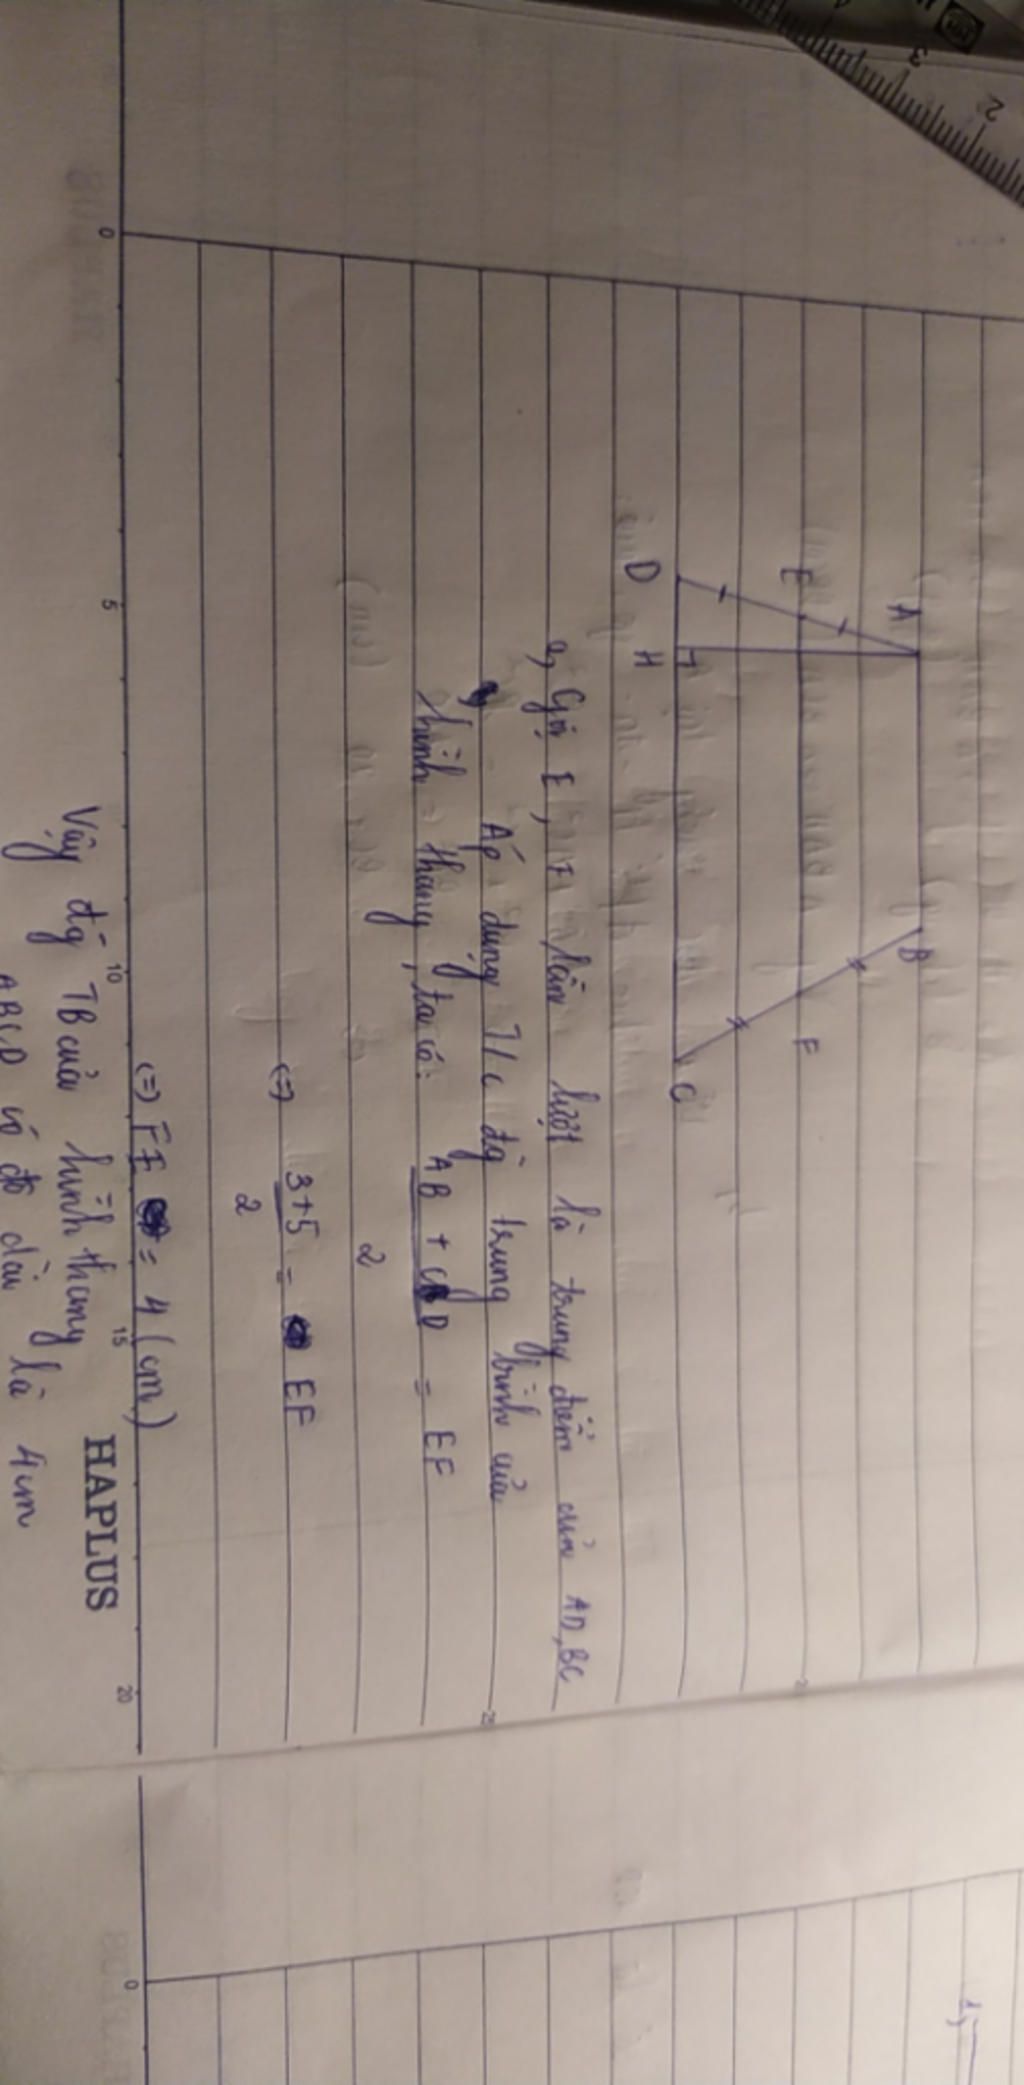 A
B
E
F
D
H
C
a, Gọi E, F lần lượt là trung điểm của AD, BC
Áp dụng T/c đg trung bình của
hình thang, ta có: AB + CD = EF
2
(=) 3+5 = EF
2
(=) FE = 4 (cm)
Vậy đg TB của hình thang
ABCD có độ dài là 4cm
HAPLUS
0
5
10
15
20
25
0
3
2
1,